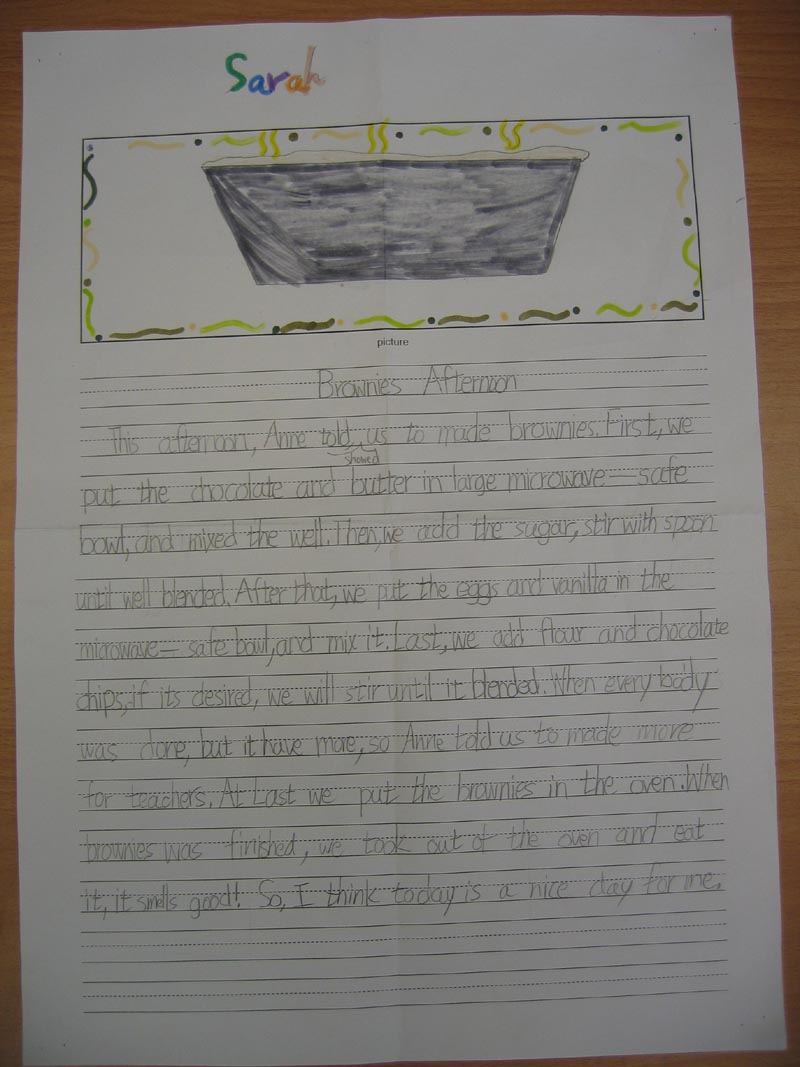 Sarah
picture
Brownies Afternoon
This afternoon, Anne told us to made brownies. First, we
showed
put the chocolate and butter in large microwave—safe
bowl, and mixed the well. Then, we add the sugar, stir with spoon
until well blended. After that, we put the eggs and vanilla in the
microwave— safe bowl, and mix it. Last, we add flour and chocolate
chips, if its desired, we will stir until it blended. When every body
was done, but it have more, so Anne told us to made more
for teachers. At Last we put the brownies in the oven. When
brownies was finished, we took out of the oven and eat
it, it smells good! So, I think today is a nice day for me.